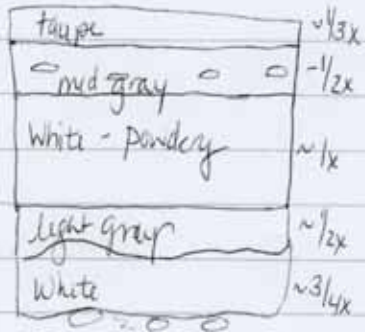 taupe ~1/3x
mid gray ~1/2x
White - powdery ~1x
light gray ~1/2x
White ~3/4x